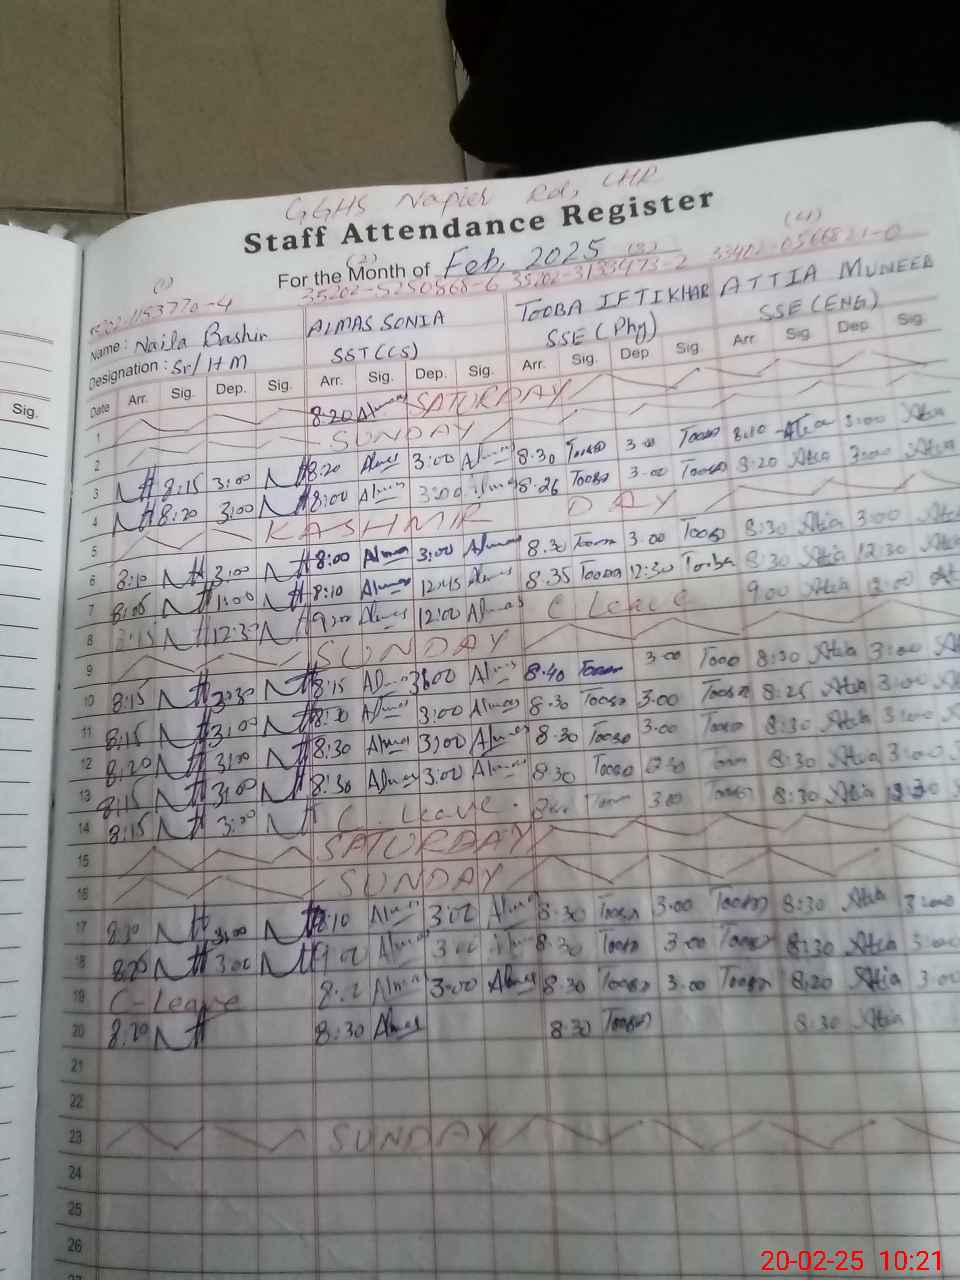 GGHS Napier Rd, LHR
Staff Attendance Register
For the Month of Feb, 2025
(1) (2) (3) (4)
35202-5250868-6 35202-3133473-2
Name: Naila Bashir ALMAS SONIA TOOBA IFTIKHAR ATTIA MUNEEB
Designation: Sr/HM SST (CS) SSE (Phy) SSE (ENG)
Date Arr. Sig. Dep. Sig. Arr. Sig. Dep. Sig. Arr. Sig. Dep Sig. Arr. Sig. Dep. Sig.
Sig.
1 8:20 Almas SATURDAY
2 SUNDAY
3 8:15 3:00 8:20 Almas 3:00 Almas 8.30 Tooba 3.00 Tooba 8:10 Attia 3:00 Attia
4 8:20 3:00 8:00 Almas 3:00 Almas 8.26 Tooba 3.00 Tooba 8:20 Attia 3:00 Attia
5 KASHMIR DAY
6 8:10 3:00 8:00 Almas 3:00 Almas 8.30 Tooba 3.00 Tooba 8:30 Attia 3:00 Attia
7 8:05 1:00 8:10 Almas 12:45 Almas 8.35 Tooba 12:30 Tooba 8:30 Attia 12:30 Attia
8 8:15 12:30 9:00 Almas 12:00 Almas C Leave 9:00 Attia 12:00
9 SUNDAY
10 8:15 3:30 8:15 Almas 3:00 Almas 8.40 Tooba 3.00 Tooba 8:30 Attia 3:00 Attia
11 8:15 3:00 8:30 Almas 3:00 Almas 8.30 Tooba 3.00 Tooba 8:25 Attia 3:00
12 8:20 3:00 8:30 Almas 3:00 Almas 8.30 Tooba 3.00 Tooba 8:30 Attia 3:00
13 8:15 3:00 8:30 Almas 3:00 Almas 8.30 Tooba Tooba 8:30 Attia 3:00
14 8:15 3:00 C. Leave Tooba 3.00 Tooba 8:30 Attia
15 SATURDAY
16 SUNDAY
17 8:10 3:00 8:10 Almas 3:00 Almas 8.30 Tooba 3.00 Tooba 8:30 Attia 3:00
18 8:20 3:00 9:00 Almas 3:00 Almas 8.30 Tooba 3.00 Tooba 8:30 Attia 3:00
19 C-Leave Almas 3:00 Almas 8.30 Tooba 3.00 Tooba 8:20 Attia 3:00
20 8:20 8:30 Almas 8.30 Tooba 8:30 Attia
21
22
23 SUNDAY
24
25
26
20-02-25 10:21